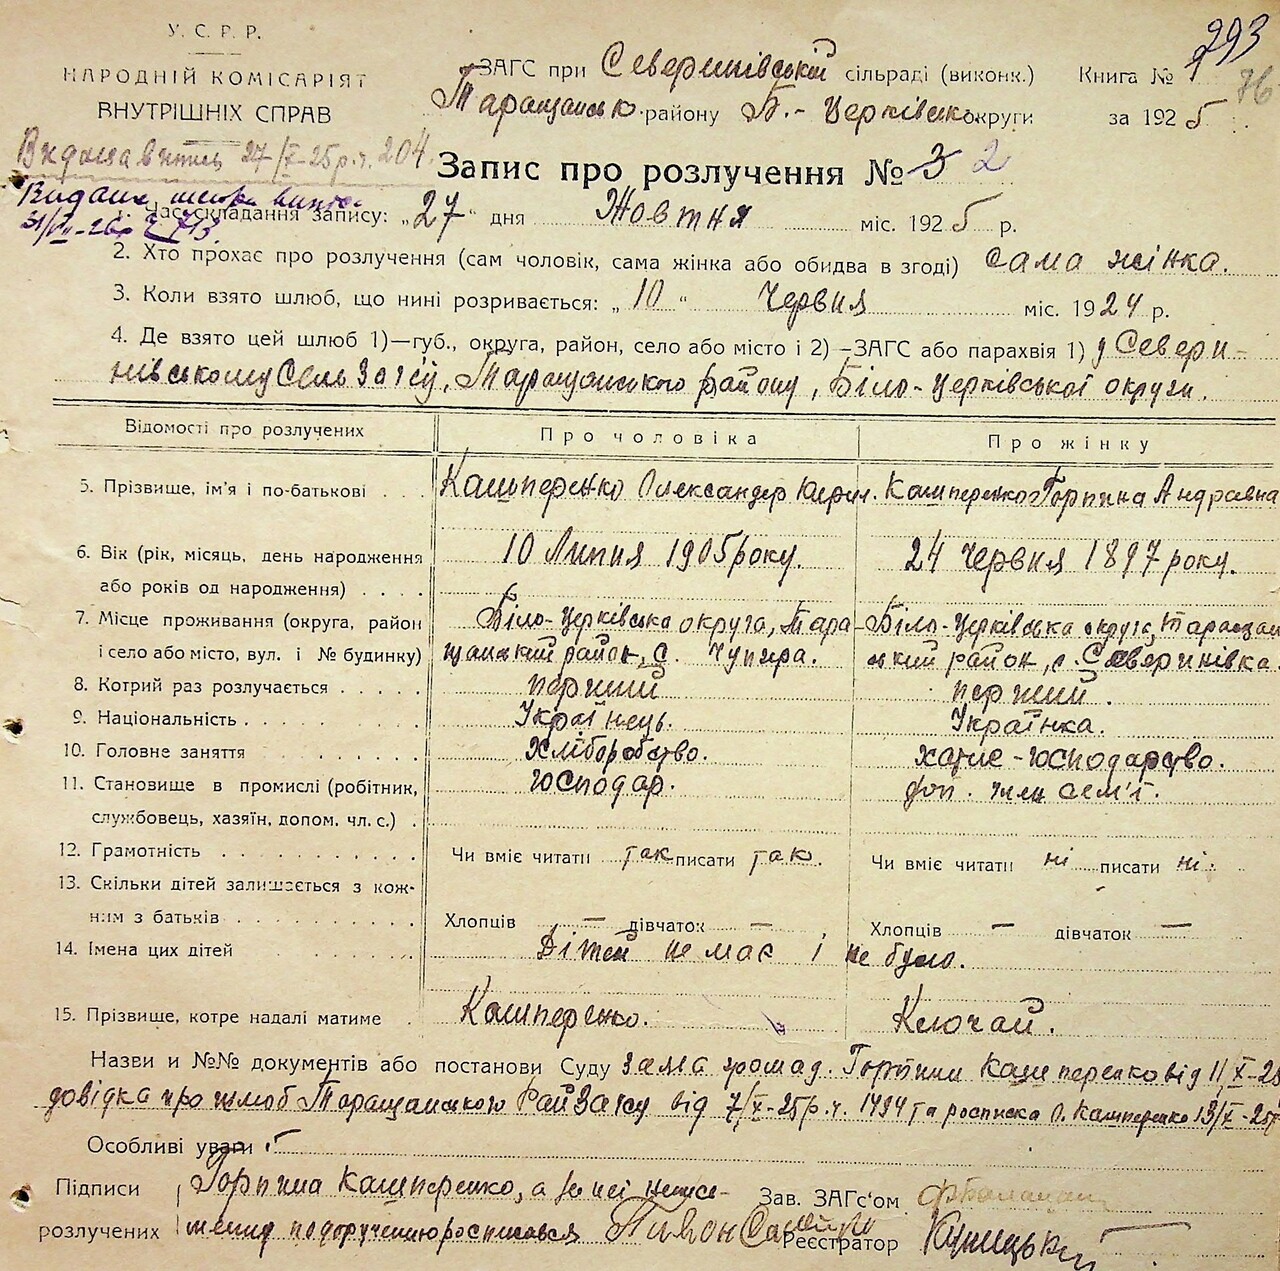 У.С.Р.Р.
НАРОДНІЙ КОМІСАРІЯТ
ВНУТРІШНІХ СПРАВ
293
76
ЗАГС при Северинівській сільраді (виконк.) Книга №
Таращанськ. району Б.-Церківськ. округи за 1925
27/X-25р. ч. 204.
Запис про розлучення № 3 2
1. Час складання запису: „27“ дня Жовтня міс. 1925 р.
2. Хто прохає про розлучення (сам чоловік, сама жінка або обидва в згоді) сама жінка.
3. Коли взято шлюб, що нині розривається: „10“ Червня міс. 1924 р.
4. Де взято цей шлюб 1)—губ., округа, район, село або місто і 2) —ЗАГС або парахвія 1) у Севери-
нівському СельЗагсу, Таращанського району, Біло-Церківської округи.
Відомості про розлучених Про чоловіка Про жінку
5. Прізвище, ім'я і по-батькові . . . Кашперенко Олександер Кашперенко Горпина Андравна
6. Вік (рік, місяць, день народження 10 Липня 1905 року. 24 Червня 1897 року.
або років од народження) . . . .
7. Місце проживання (округа, район Біло-Церківська округа, Тара- Біло-Церківська округа, Таращан
і село або місто, вул. і № будинку) щанський район, с. Чупира. ський район, с. Северинівка.
8. Котрий раз розлучається . . . . . перший перший.
9. Національність . . . . . . . . . Українець. Українка.
10. Головне заняття . . . . . . . Хліборобство. хатнє-господарство.
11. Становище в промислі (робітник, господар. доп. член сем'ї.
службовець, хазяїн, допом. чл. с.) .
12. Грамотність . . . . . . . . . . Чи вміє читати так писати так. Чи вміє читати ні писати ні.
13. Скільки дітей залишається з кож-
ним з батьків . . . . . . . . . . Хлопців — дівчаток — Хлопців — дівчаток —
14. Імена цих дітей . . . . . . . Дітей не має і не було.
15. Прізвище, котре надалі матиме . Кашперенко. Ключай.
Назви и №№ документів або постанови Суду Заява громад. Горпини Кашперенко від 11/X-25
довідка про шлюб Таращанського РайЗагсу від 7/X-25р. ч. 1494 та росписка О. Кашперенко 13/X-25р
Особливі уваги
Підписи Горпина Кашперенко, а за неї неписе- Зав. ЗАГС'ом
розлучених менну по доручению росписався Реєстратор Куницький